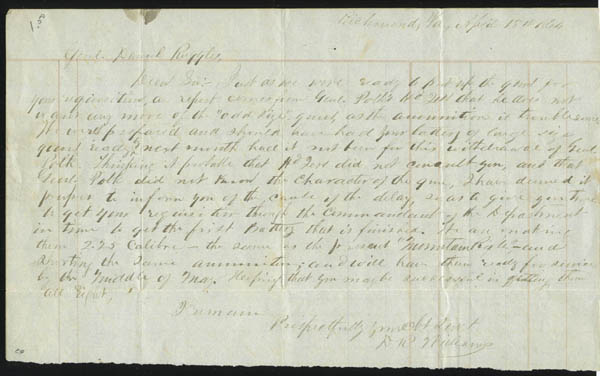 Richmond, Va, April 15th 1864
Genl. Daniel Ruggles,
Dear Sir: Just as we were ready to put up the guns for
your requisitions, a report comes from Genl. Polk's that he does not
want any more of the odd size guns, as the ammunition is troublesome.
We were prepared and should have had four batteries of large size
guns ready next month had it not been for this withdrawal of Genl
Polk. Thinking it probable that he did not consult you, and that
Genl Polk did not know the character of the gun, I have deemed it
proper to inform you of the cause of the delay, so as to give you time
to get your requisition through the Commandant of the Department
in time to get the first Battery that is finished. We are making
them 2.25 Calibre – the same as the present Mountain rifle – and
shooting the same ammunition; and will have them ready for service
by the middle of May. Hoping that you may be successful in getting them
all right,
I remain
Respectfully your obt Servt
Williams